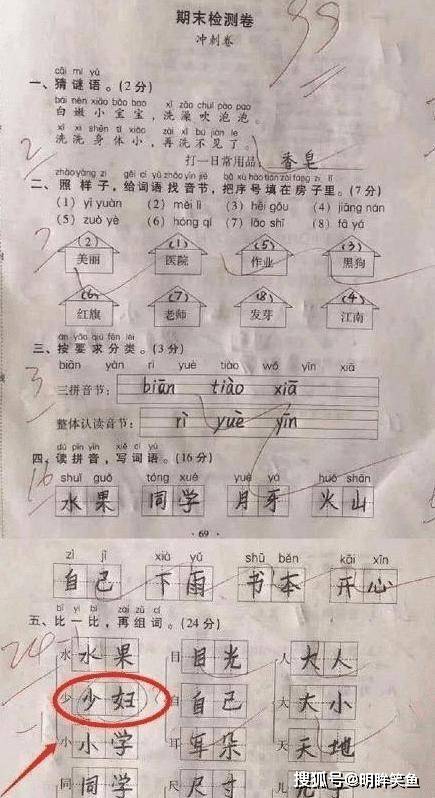 期末检测卷
冲刺卷
99
cāi mí yǔ
一、猜谜语。(2分)
bái nèn xiǎo bǎo bao xǐ zǎo chuī pào pao
白嫩小宝宝，洗澡吹泡泡。
xǐ xǐ shēn tǐ xiǎo zài xǐ bú jiàn le
洗洗身体小，再洗不见了。
2
打一日常用品：香皂
zhào yàng zi gěi cí yǔ zhǎo yīn jié bǎ xù hào tián zài fáng zi lǐ
二、照样子，给词语找音节，把序号填在房子里。(7分)
(1) yī yuàn (2) měi lì (3) hēi gǒu (4) jiāng nán
(5) zuò yè (6) hóng qí (7) lǎo shī (8) fā yá
7
(2) (1) (5) (3)
美丽 医院 作业 黑狗
(6) (7) (8) (4)
红旗 老师 发芽 江南
àn yāo qiú fēn lèi
三、按要求分类。(3分)
biān yàn rì yuè tiào wǒ yīn xiā
3
三拼音节： biān tiào xiā
整体认读音节： rì yuè yīn
dú pīn yīn xiě cí yǔ
四、读拼音，写词语。(16分)
16
shuǐ guǒ tóng xué yuè yá huǒ shān
水果 同学 月牙 火山
· 69 ·
zì jǐ xià yǔ shū běn kāi xīn
自己 下雨 书本 开心
bǐ yì bǐ zài zǔ cí
五、比一比，再组词。(24分)
水 水果 目 目光 人 大人
少 少妇 自 自己 大 大小
小 小学 耳 耳朵 天 天地
同 同学 尺 尺寸 儿
搜狐号@明眸笑鱼